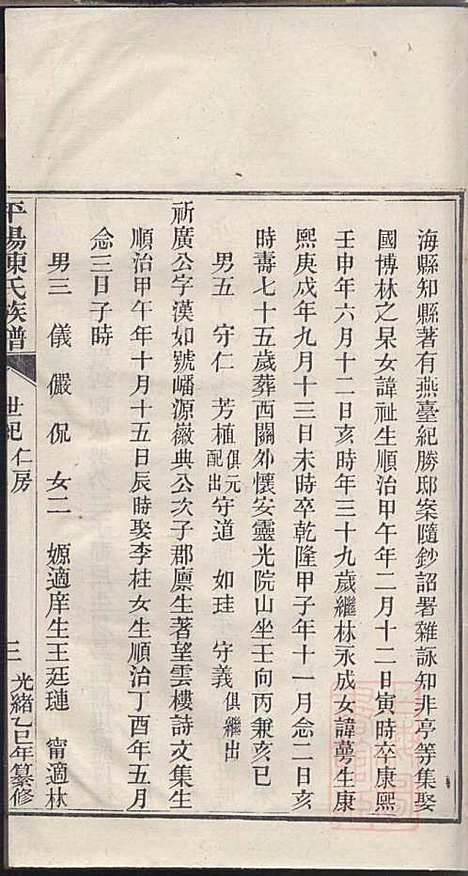 海縣知縣著有燕臺紀勝邸案隨鈔詔署雜詠知非亭等集娶
國博林之杲女諱祉生順治甲午年二月十二日寅時卒康熙
壬申年六月十二日亥時年三十九歲繼林永成女諱蕚生康
熙庚戌年九月十三日未時卒乾隆甲子年十一月念二日亥
時壽七十五歲葬西關外懷安靈光院山坐壬向丙兼亥巳
男五 守仁 芳植俱元配出守道 如珪 守義俱繼出
祈廣公字漢如號皤源徽典公次子郡廩生著望雲樓詩文集生
順治甲午年十月十五日辰時娶李柱女生順治丁酉年五月
念三日子時
男三 儀 儼 侃 女二 嫄適庠生王廷璉 甯適林
平陽陳氏族譜 世紀 仁房 三 光緒乙巳年纂修